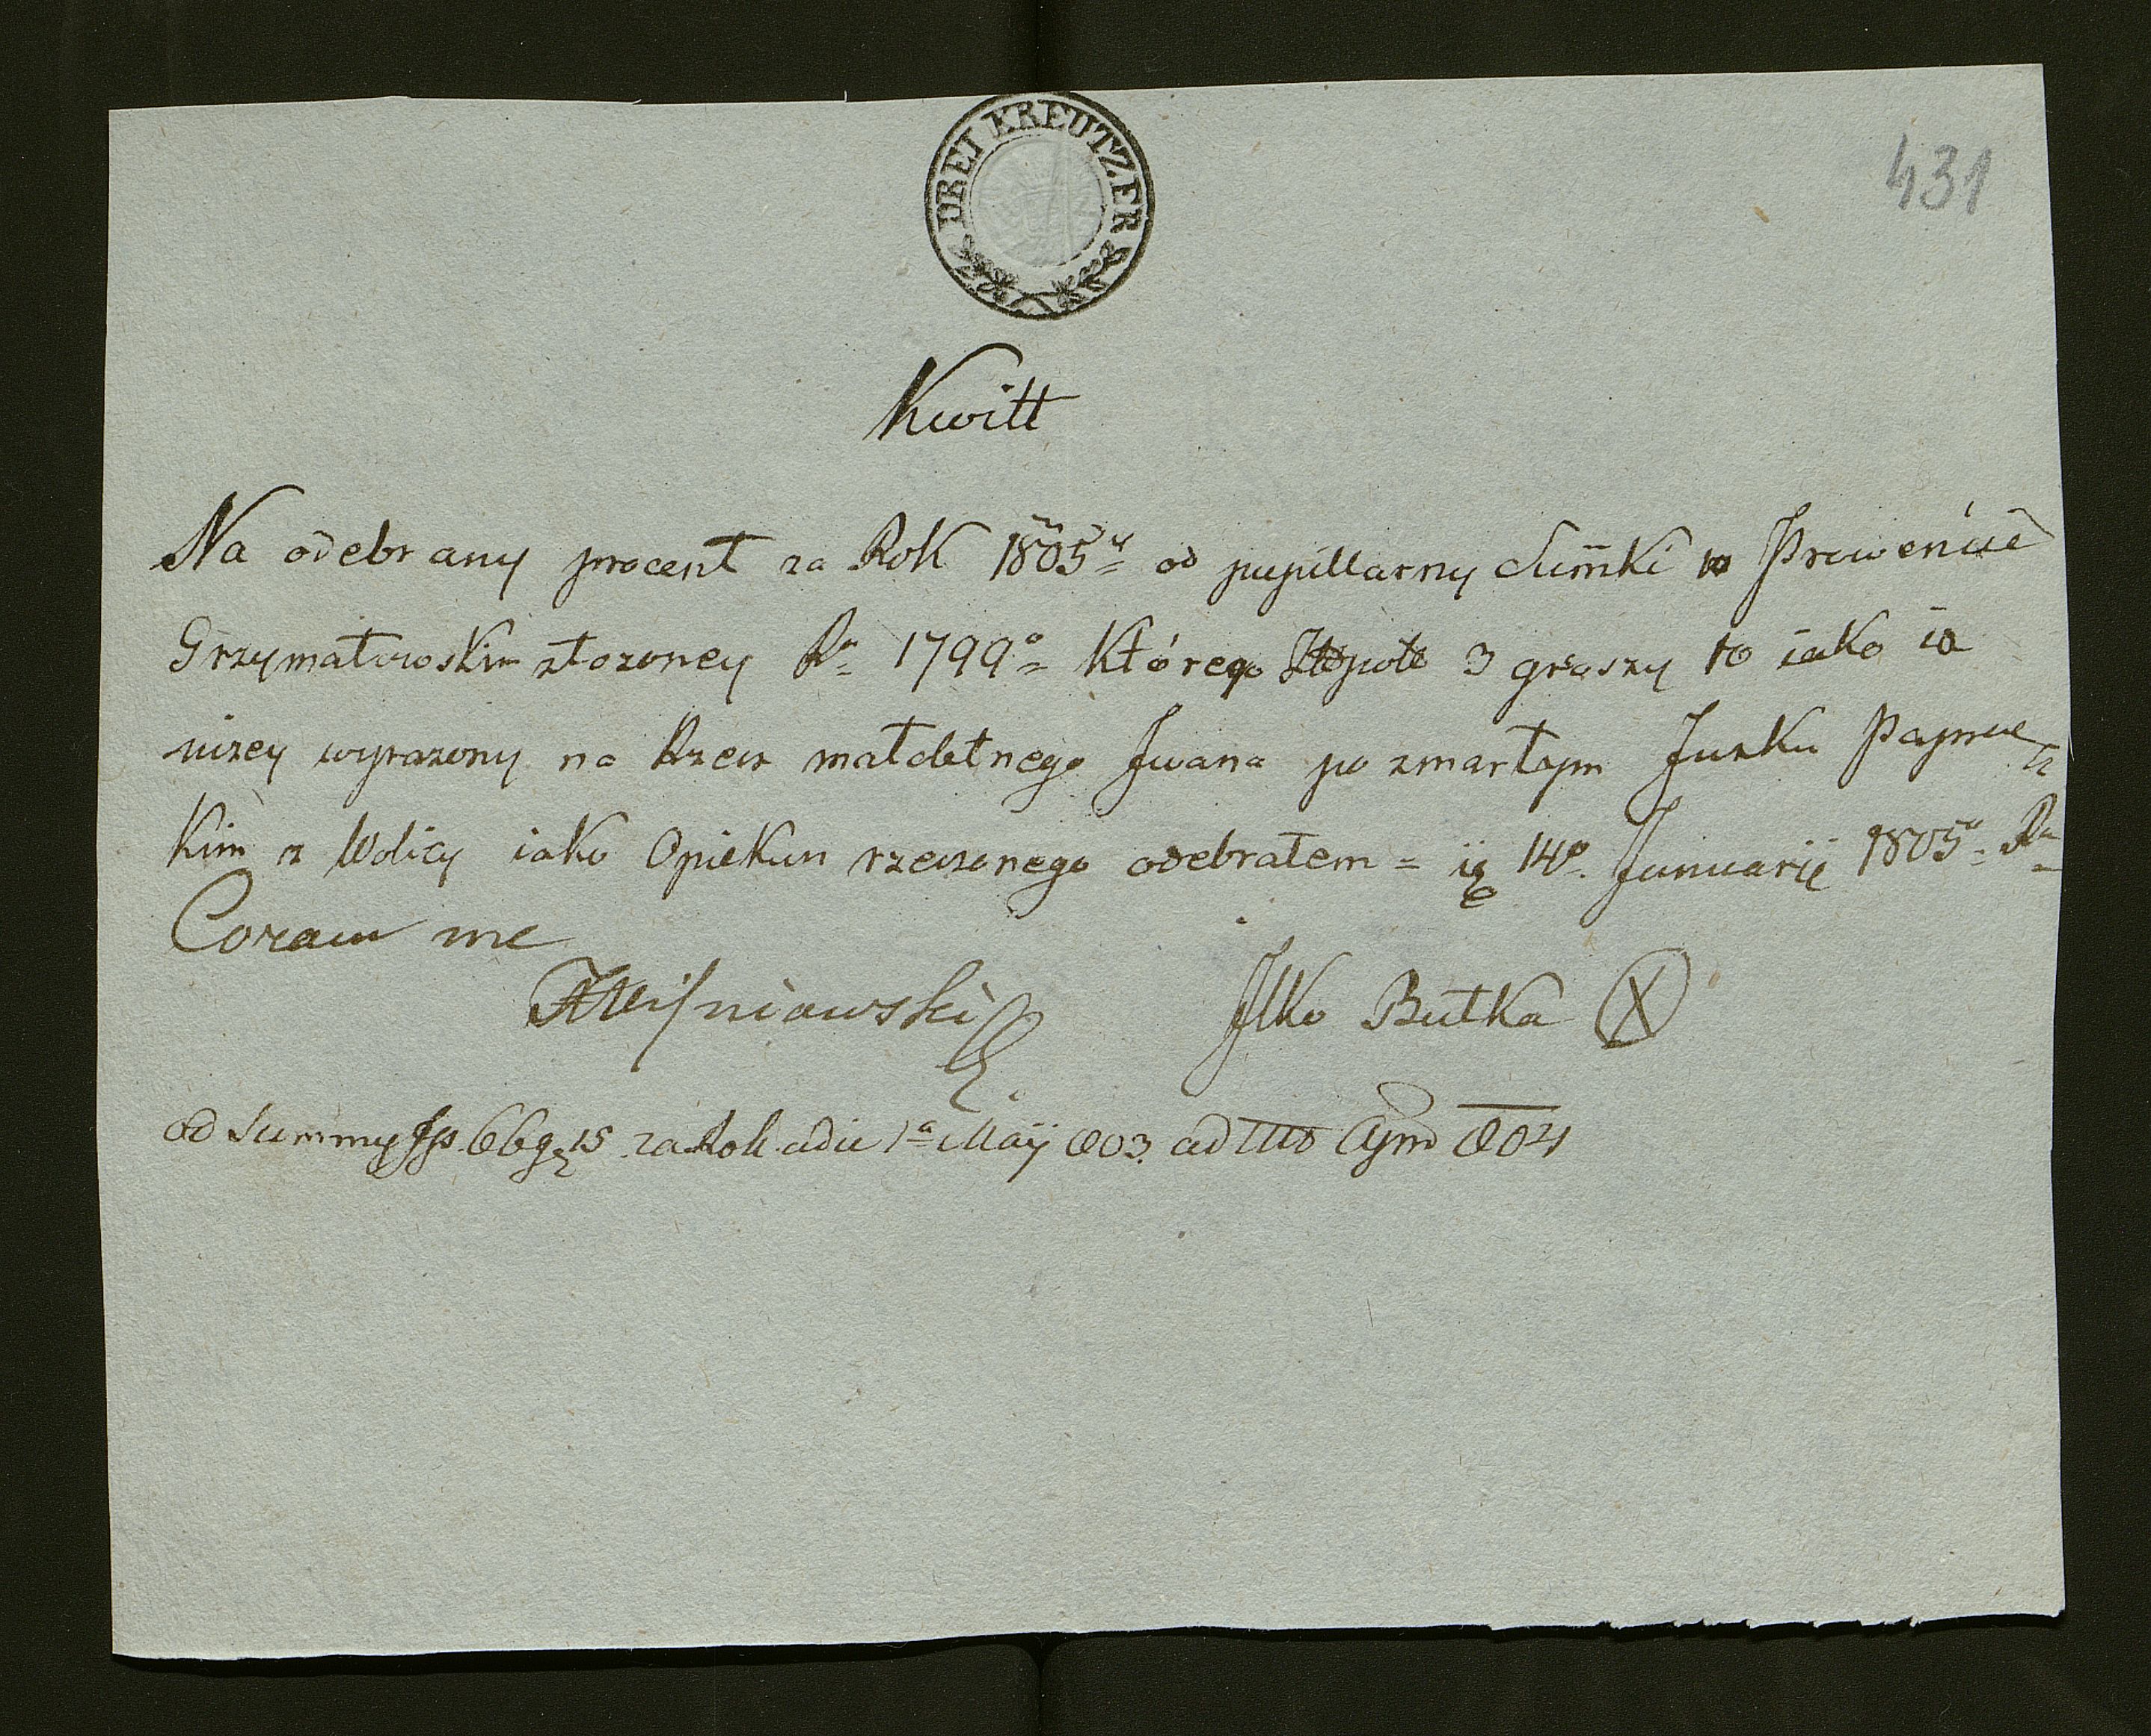 DREI KREUTZER
431
Kwitt
Na odebrany procent za Rok 1805 od pupillarny Sum̄ki w Prowencie
Grzymałowskim złozoney Ru 1799o Którego 3 groszy to iako ia
nizey wyrazony na Rzecz małoletnego Jwana po zmarłym Jurku
Kim z Wolicy iako Opiekun rzeczonego odebrałem = 14o. Januarij 1805. Ru
Coram me
Wiſniowski Jlko Bułka X
od Summy 66 g 15 za Rok a die 1a Maÿ 803 ad 804